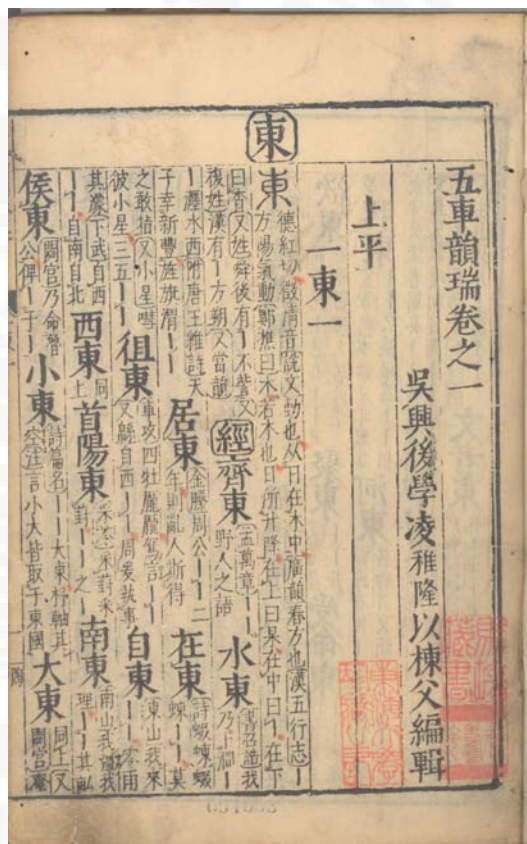 五車韻瑞卷之一
吳興後學凌稚隆以棟父編輯
上平
一東一
東
東
德紅切徵清音說文動也从日在木中廣韻春方也漢五行志丨
方陽氣動鄭樵曰木若木也日所升降在上曰杲在中曰丨在下
曰杳又姓舜後有丨不訾又
複姓漢有丨方朔又當
經
齊東
孟萬章丨丨
野人之語
水東
書召誥我
乃卜澗丨
丨瀍水西附唐王維詩天
子幸新豐旌旗渭丨丨
居東
金縢周公丨丨二
年則罪人斯得
在東
詩蝃蝀蝃
蝀丨丨莫
之敢指又小星嘒
彼小星三五丨丨
徂東
車攻四牡龐龐駕言丨丨
又緜自西丨丨周爰執事
自東
東山我來
丨丨零雨
其濛下武自西
丨丨自南自北
西東
同
上
首陽東
采苓采葑采
葑丨丨之丨
南東
南山我疆我
理丨丨其畝
侯東
閟宮乃命魯
公俾丨于丨
小東
詩篇名丨丨大東杼軸其
空注言小大皆取于東國
大東
同上又
閟宮奄